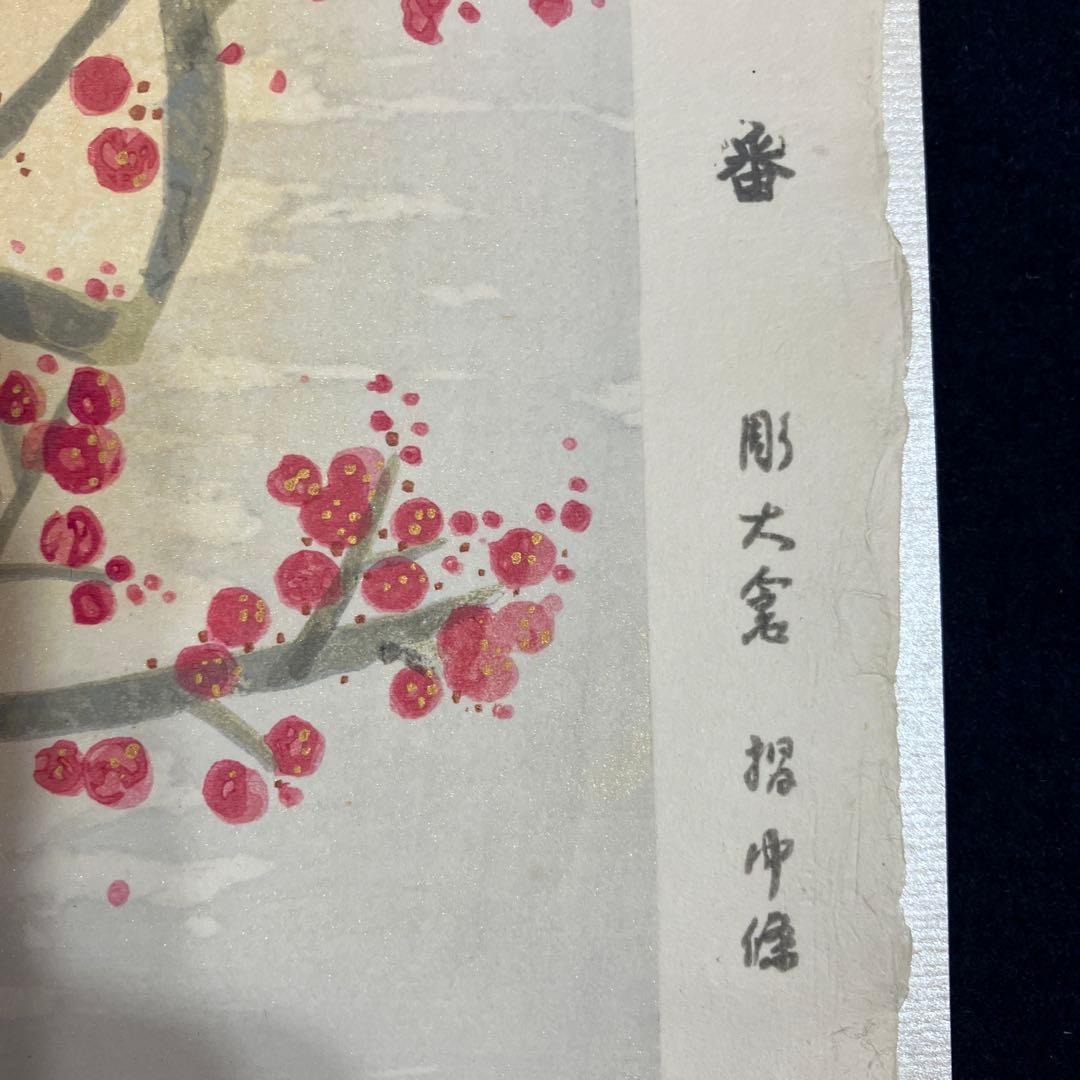 番 彫 大倉 摺 中條